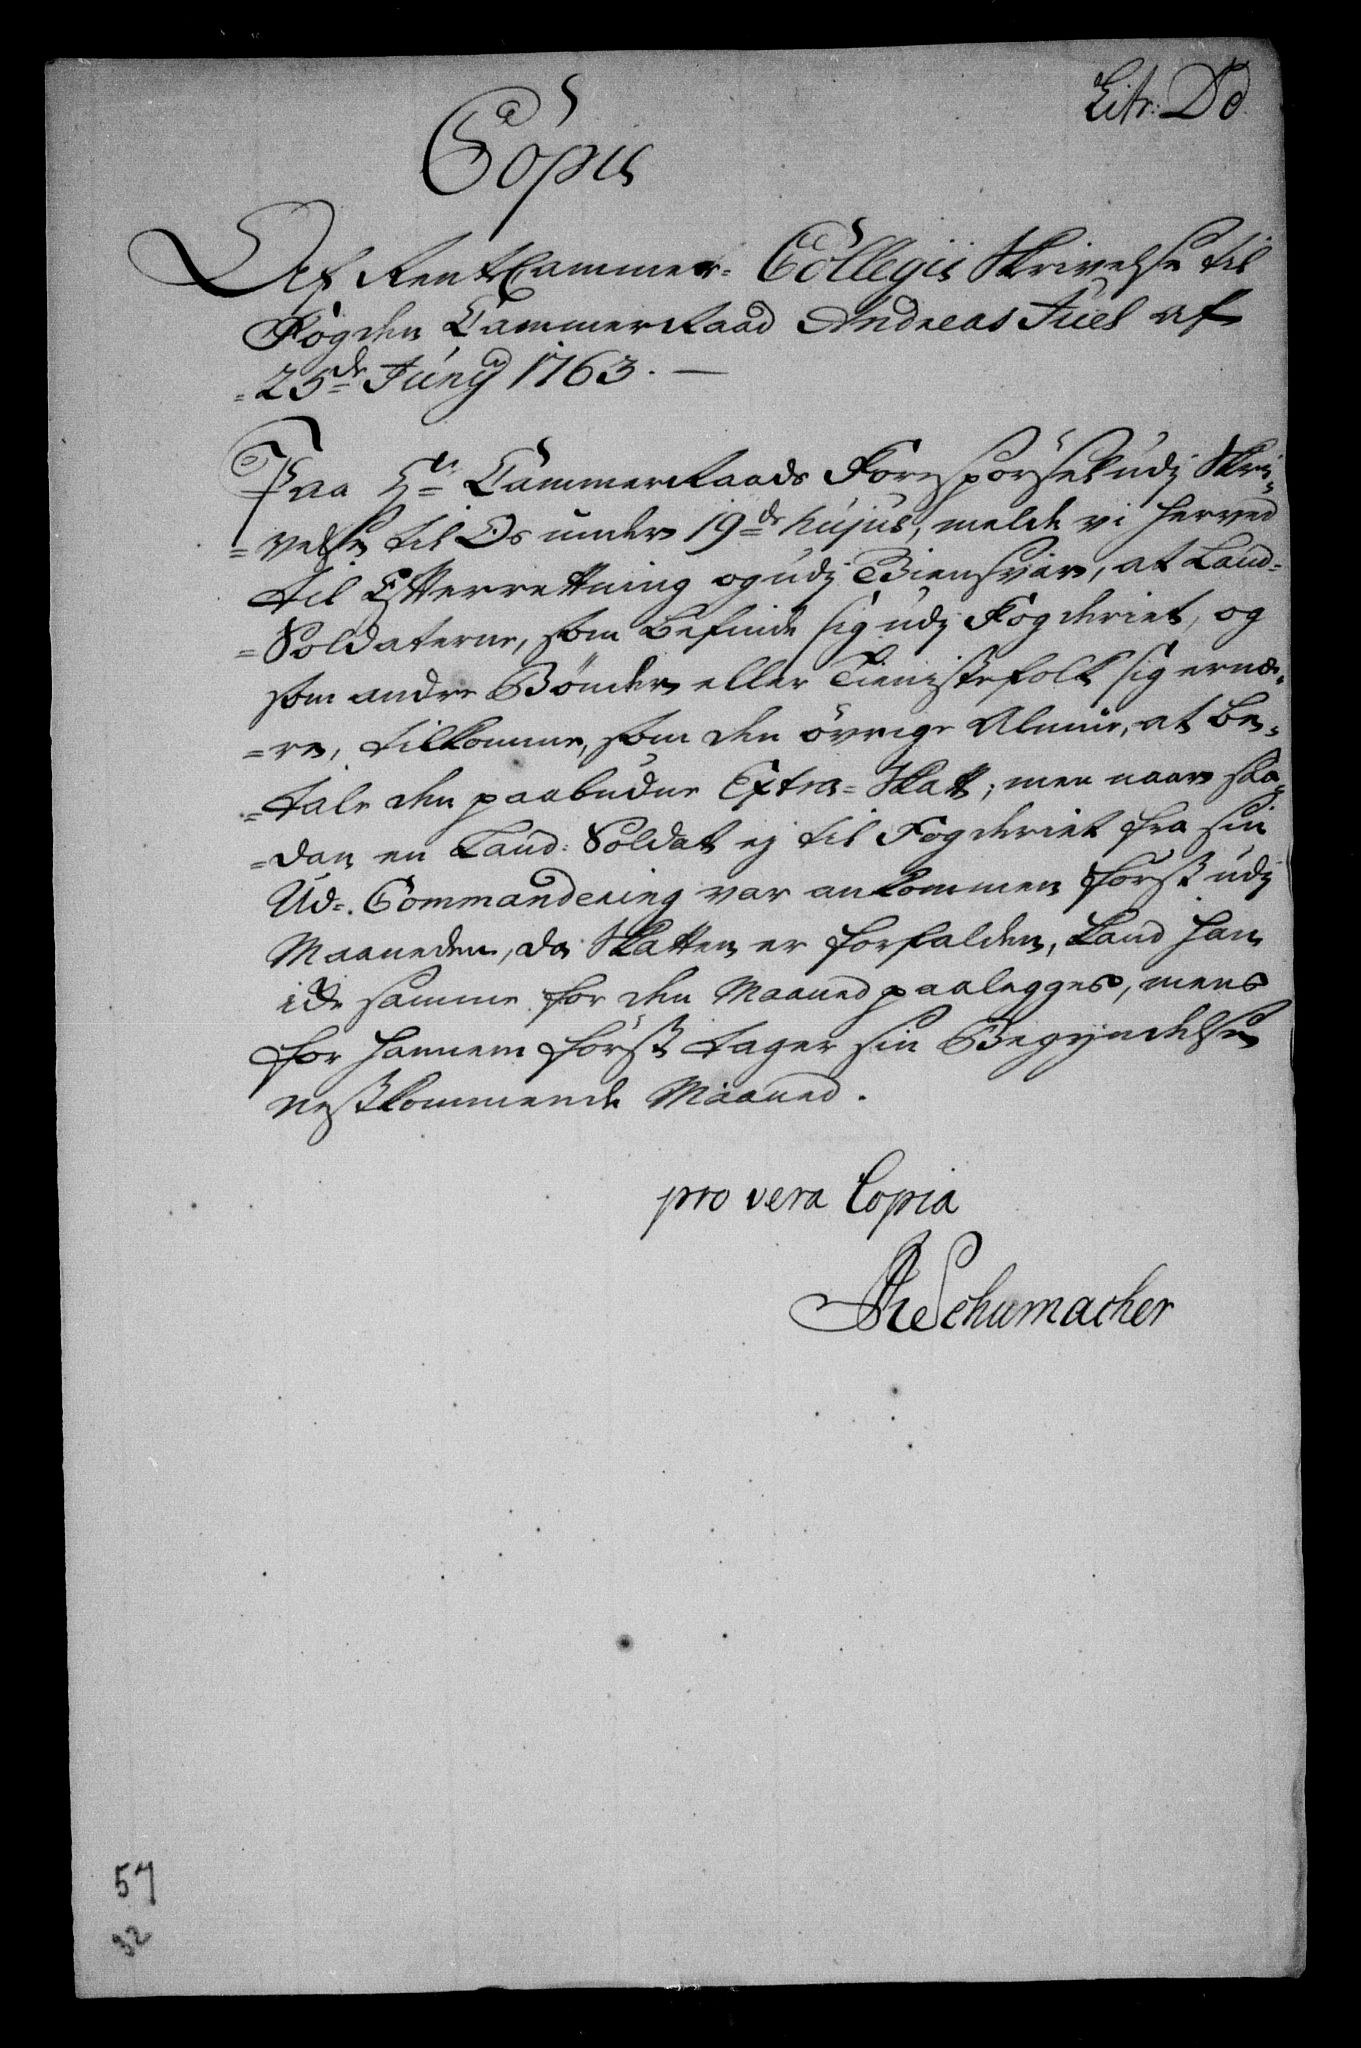 Litr: Dd.
Copie
Af RentCammer-Collegii Skrivelse til
Fogden CammerRaad Andreas Juel af
=25de Junij 1763. —
Paa Hr. CammerRaads Forespörsel udj Skri=
=velse til Os under 19de hujus, melde vi herved
til Efterretning og udj Giensvar, at Land=
=Soldaterne, som befinde sig udj Fogderiet, og
som andre Bönder eller Tienistefolk sig ernæ=
=re, tilkomme, som den övrige Almue, at be=
=tale den paabudne Extra=Skatt; men naar saa=
=dan en Land=Soldat ej til Fogderiet fra sin
Ud=Commandering var ankommen först udj
Maaneden, da Skatten er forfalden, kand han
icke samme for den Maaned paalegges, mens
for hannem först tager sin Begyndelse
nestkommende Maaned.
pro vera Copia
Schumacher
57
32